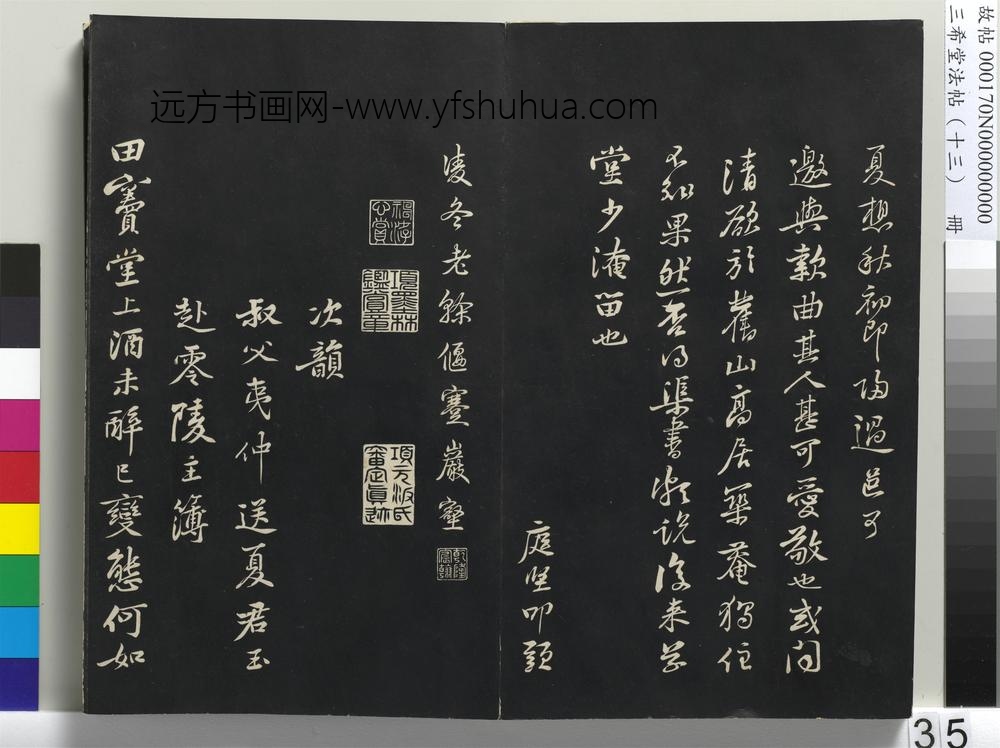 远方书画网-www.yfshuhua.com
故帖 000170N000000000
三希堂法帖（十三） 冊
夏想秋初即歸過邑可
邀與款曲其人甚可愛敬也或问
清欲於舊山高居築菴獨住
不知果然否得渠書頗説後来草
堂少淹留也
庭堅叩頭
凌冬老幹偃蹇巖壑
乾隆宸翰
神游心賞
項墨林鑑賞章
項元汴氏審定真迹
次韻
叔父夷仲送夏君玉
赴零陵主簿
田竇堂上酒未醉已變態何如
35